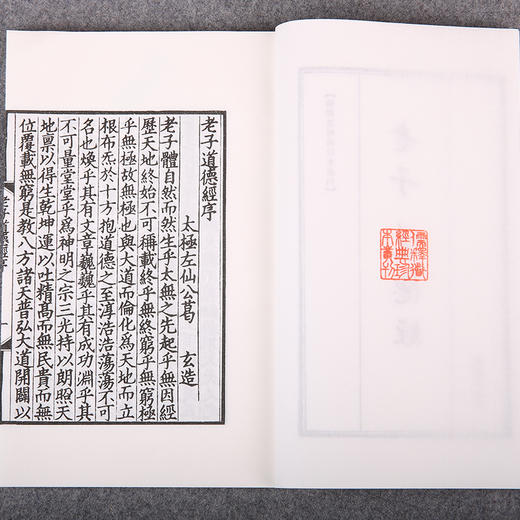 儒釋道
經典珍
老子
老子道德經序
太極左仙公葛　玄造
老子體自然而然生乎太無之先起乎無因經
歷天地終始不可稱載終乎無終窮乎無窮極
乎無極故無極也與大道而倫化為天地而立
根布炁於十方抱道德之至淳浩浩蕩蕩不可
名也煥乎其有文章巍巍乎其有成功淵乎其
不可量堂堂乎為神明之宗三光持以朗照天
地稟以得生乾坤運以吐精髙而無民貴而無
位覆載無窮是教八方諸天普弘大道開闢以